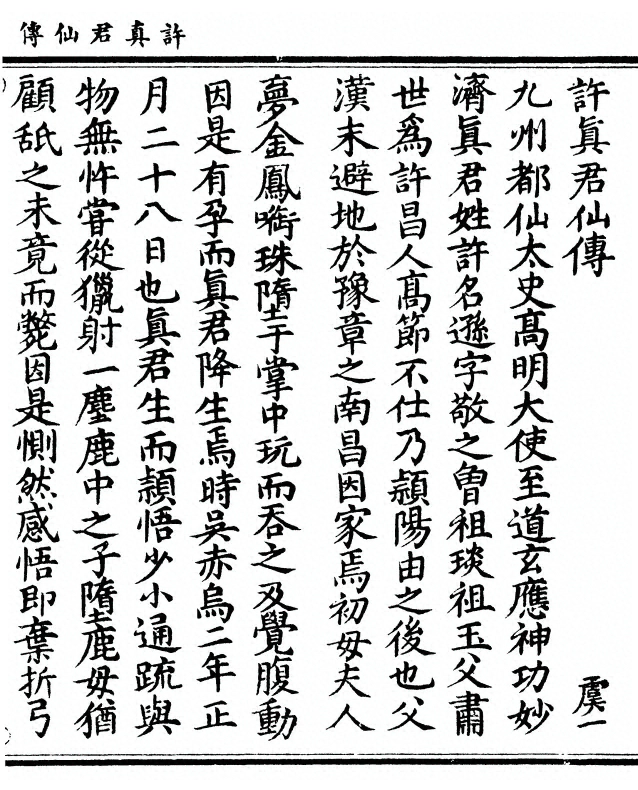 許真君仙傳
許眞君仙傳 虞一
九州都仙太史髙明大使至道玄應神功妙
濟眞君姓許名遜字敬之曾祖琰祖玉父肅
世爲許昌人髙節不仕乃潁陽由之後也父
漢末避地於豫章之南昌因家焉初母夫人
夢金鳳㗸珠墮于掌中玩而吞之及覺腹動
因是有孕而眞君降生焉時吳赤烏二年正
月二十八日也眞君生而穎悟少小通疏與
物無忤嘗從獵射一麈鹿中之子墮鹿母猶
顧舐之未竟而斃因是惻然感悟即棄折弓